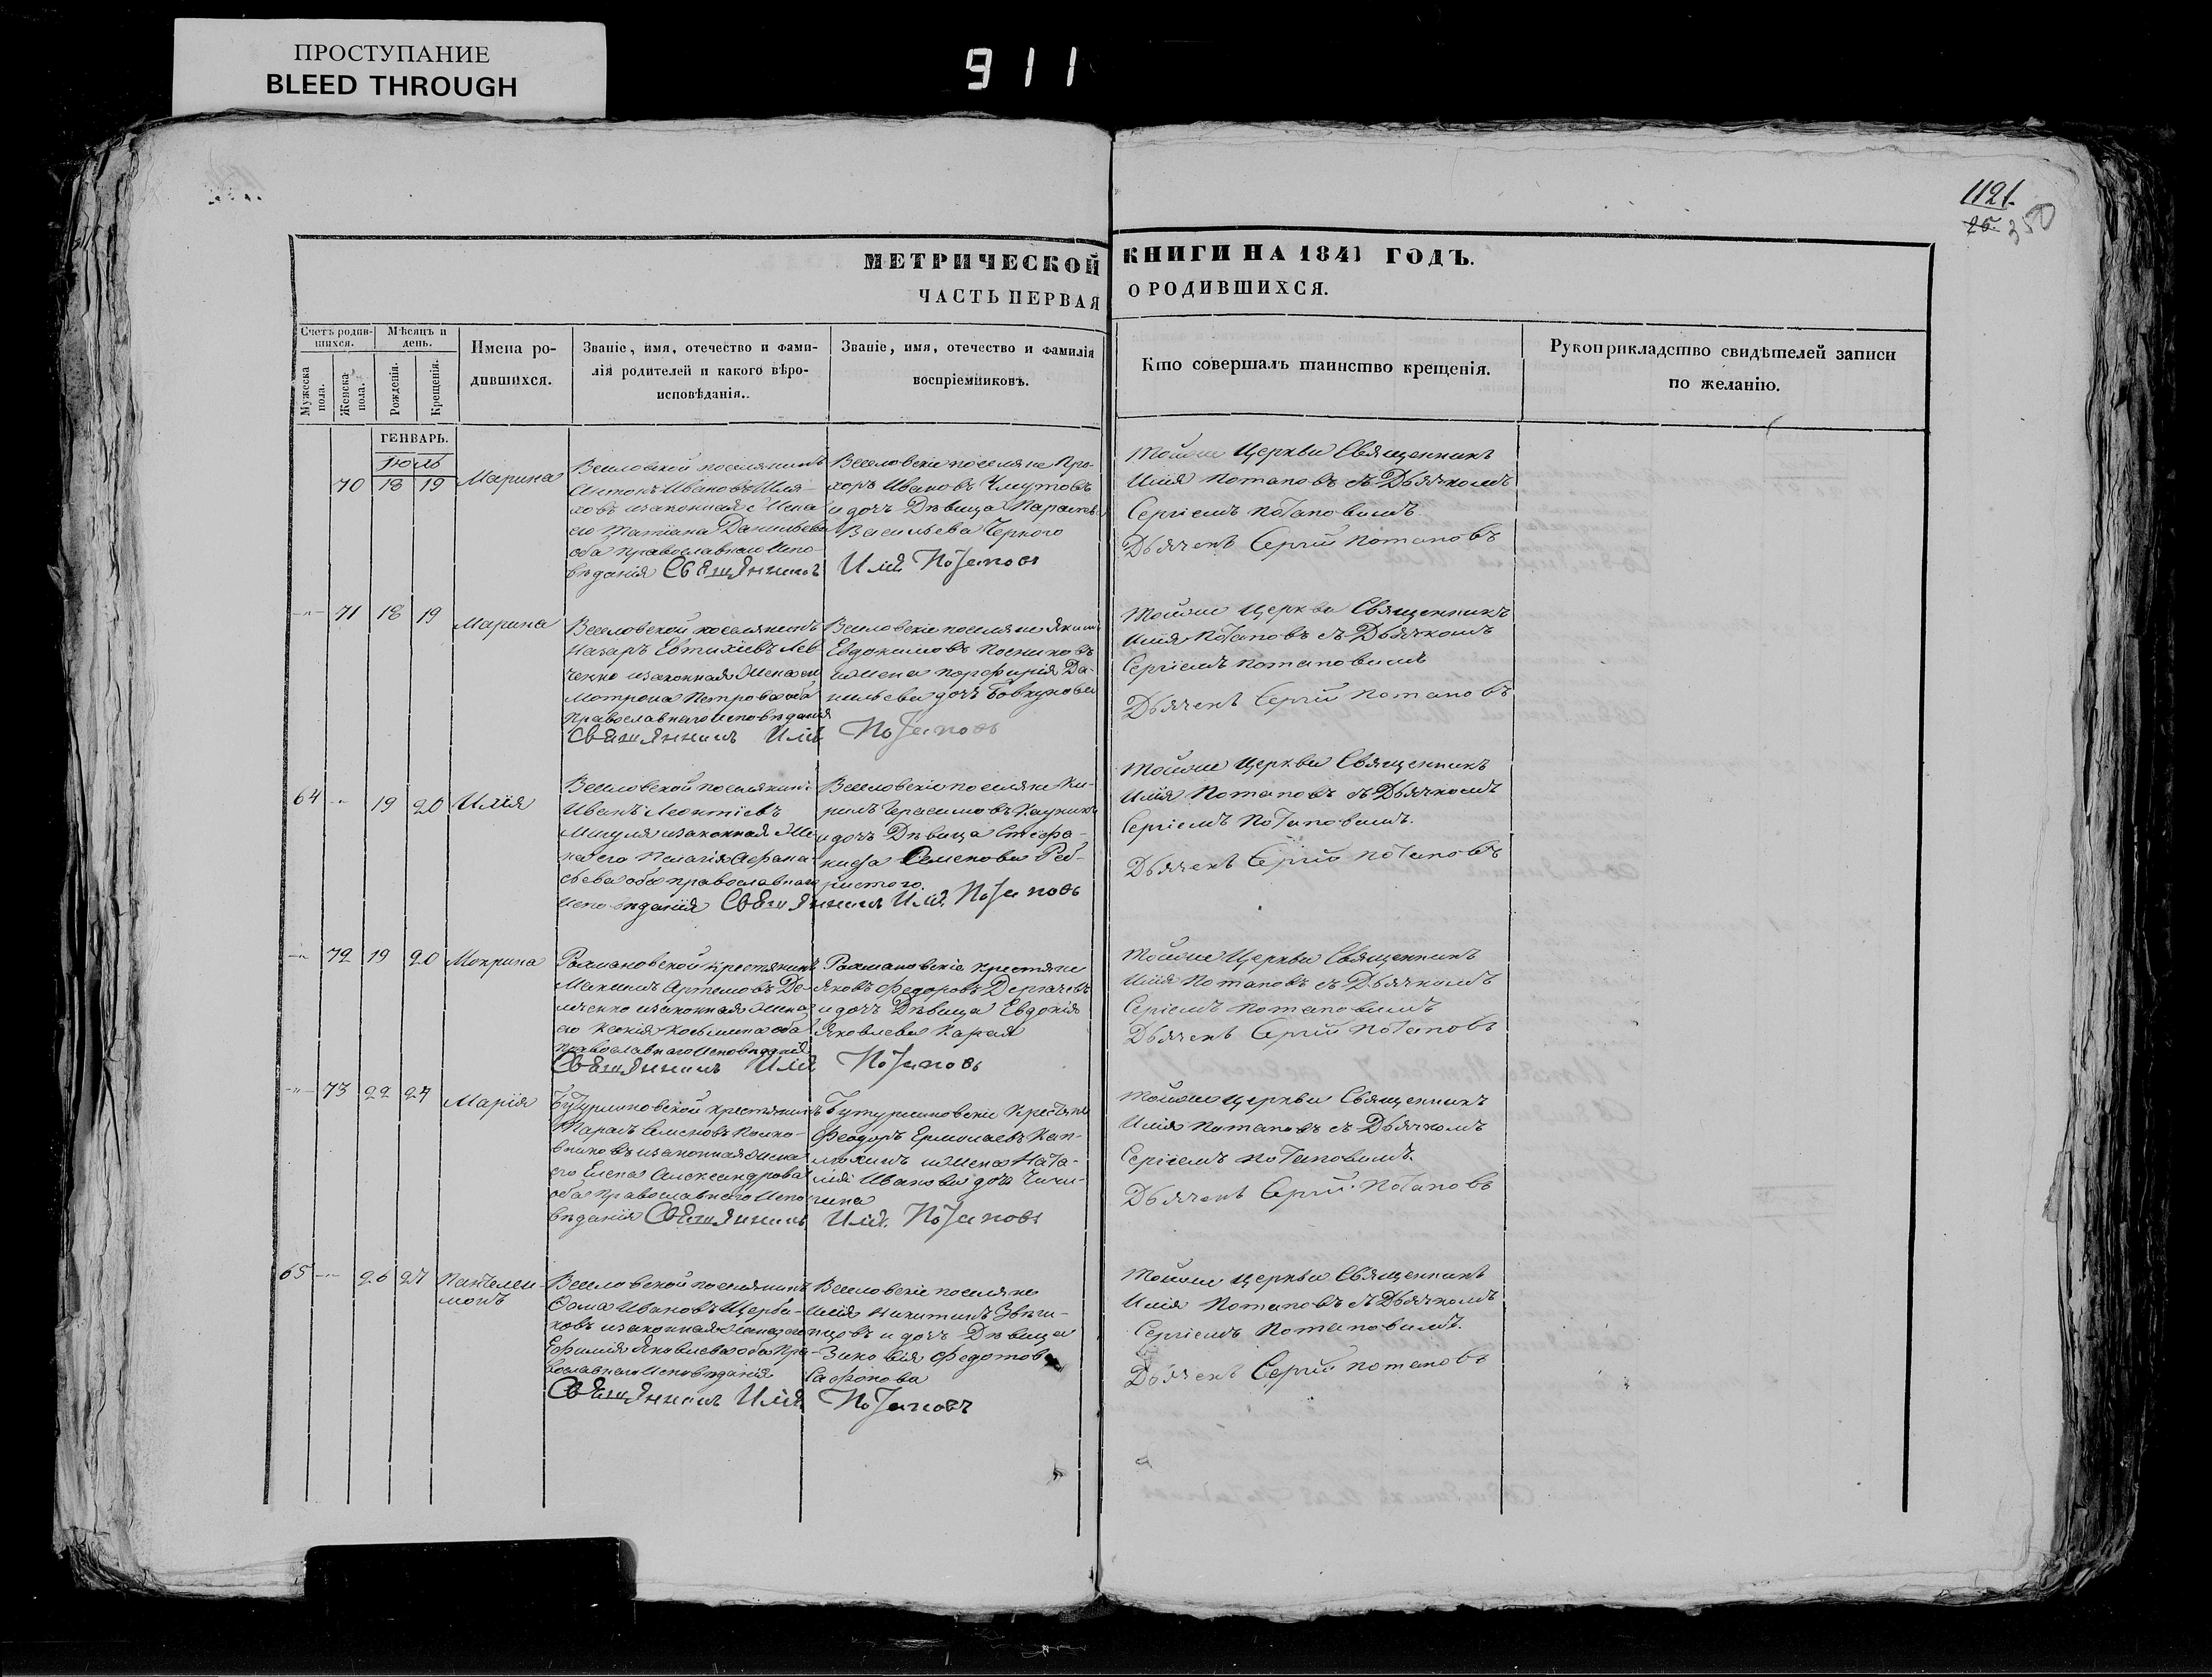 ПРОСТУПАНИЕ
BLEED THROUGH
911
1121.
26. 350
МЕТРИЧЕСКОЙ КНИГИ НА 1841 ГОДЪ.
ЧАСТЬ ПЕРВАЯ О РОДИВШИХСЯ.
Счетъ родив-
шихся.
Мужеска
пола.
Женска
пола.
Мѣсяцъ и
день.
Рожденія.
Крещенія.
Имена ро-
дившихся.
Званіе, имя, отечество и фами-
лія родителей и какого вѣро-
исповѣданія.
Званіе, имя, отечество и фамилія
воспріемниковъ.
Кто совершалъ таинство крещенія.
Рукоприкладство свидѣтелей записи
по желанію.
ГЕНВАРЬ.
Іюль
70 18 19 Марина
Веселовской поселянинъ
Антонъ Ивановъ Шля-
ховъ изаконная Жена
его Татіана Данильева
оба православнаго испо-
вѣданія Священникъ
Веселовскіе поселяне Про-
хоръ Ивановъ Чмутовъ
и дочь Дѣвица
Васильева Черного
Илія Потаповъ
тойже Церкви Священникъ
Илія Потаповъ съ Дьячкомъ
Сергіемъ Потаповымъ
Дьячекъ Сергій Потаповъ
-"- 71 18 19 Марина
Веселовской поселянинъ
Назаръ Евтихіевъ Лев-
ченко изаконная Жена ей
Мотрона Петрова оба
Православнаго исповѣданія
Священникъ Илія
Веселовскіе поселяне Якимъ
Евдокимовъ
и жена Порфирія Да-
нильева дочь Бовкунова
Потаповъ
тойже Церкви Священникъ
Илія Потаповъ съ Дьячкомъ
Сергіемъ Потаповымъ
Дьячекъ Сергій Потаповъ
64 -"- 19 20 Илія
Веселовской поселянинъ
Иванъ Леонтіевъ
Мигуля изаконная Же-
на его Пелагія Афана-
сьева оба православнаго
исповѣданія Священникъ
Веселовскіе поселяне Ки-
рилъ Герасимовъ
и дочь Дѣвица Стефа-
нида Семенова Реб-
ристого.
Илія Потаповъ
тойже Церкви Священникъ
Илія Потаповъ съ Дьячкомъ
Сергіемъ Потаповымъ.
Дьячекъ Сергій Потаповъ
-"- 72 19 20 Мокрина
Рахмановской крестянинъ
Макимъ Артемовъ Де-
мченко изаконная Жена
его Ксенія Косьмина оба
православнаго исповѣданія
Священникъ Илія
Рахмановскіе крестяне
Яковъ Федоровъ Дергачевъ
и дочь Дѣвица Евдокія
Яковлева Карая
Потаповъ
тойже Церкви Священникъ
Илія Потаповъ съ Дьячкомъ
Сергіемъ Потаповымъ
Дьячекъ Сергій Потаповъ
-"- 73 22 27 Марія
Бутурлиновской крестянинъ
Тарасъ Семеновъ Полко-
вниковъ изаконная Жена
его Елена Александрова
оба Православнаго Испо-
вѣданія Священникъ
Бутурлиновскіе крестяне
Феодоръ Ермолаевъ Кап-
люхинъ и Жена Ната-
лія Иванова дочь Чичи-
гина
Илія Потаповъ
тойже Церкви Священникъ
Илія Потаповъ съ Дьячкомъ
Сергіемъ Потаповымъ.
Дьячекъ Сергій Потаповъ
65 -"- 26 27 Пантелеи-
монъ
Веселовской поселянинъ
Фома Ивановъ Щерба-
ковъ изаконная Жена его
Ефимія Яковлева оба Пра-
вославнаго исповѣданія
Священникъ Илія
Веселовскіе поселяне
Илія Никитинъ Звѣги-
нцовъ и дочь Дѣвица
Зиновія Федотова
Сафонова
Потаповъ
тойже Церкви Священникъ
Илія Потаповъ съ Дьячкомъ
Сергіемъ Потаповымъ.
Дьячекъ Сергій Потаповъ